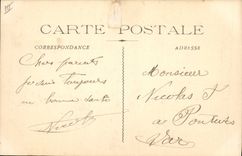 III
CARTE POSTALE
CORRESPONDANCE
ADRESSE
Chers parents
je suis toujours
en bonne santé
Nicolas
Monsieur
Nicolas J
à Pontevès
Var